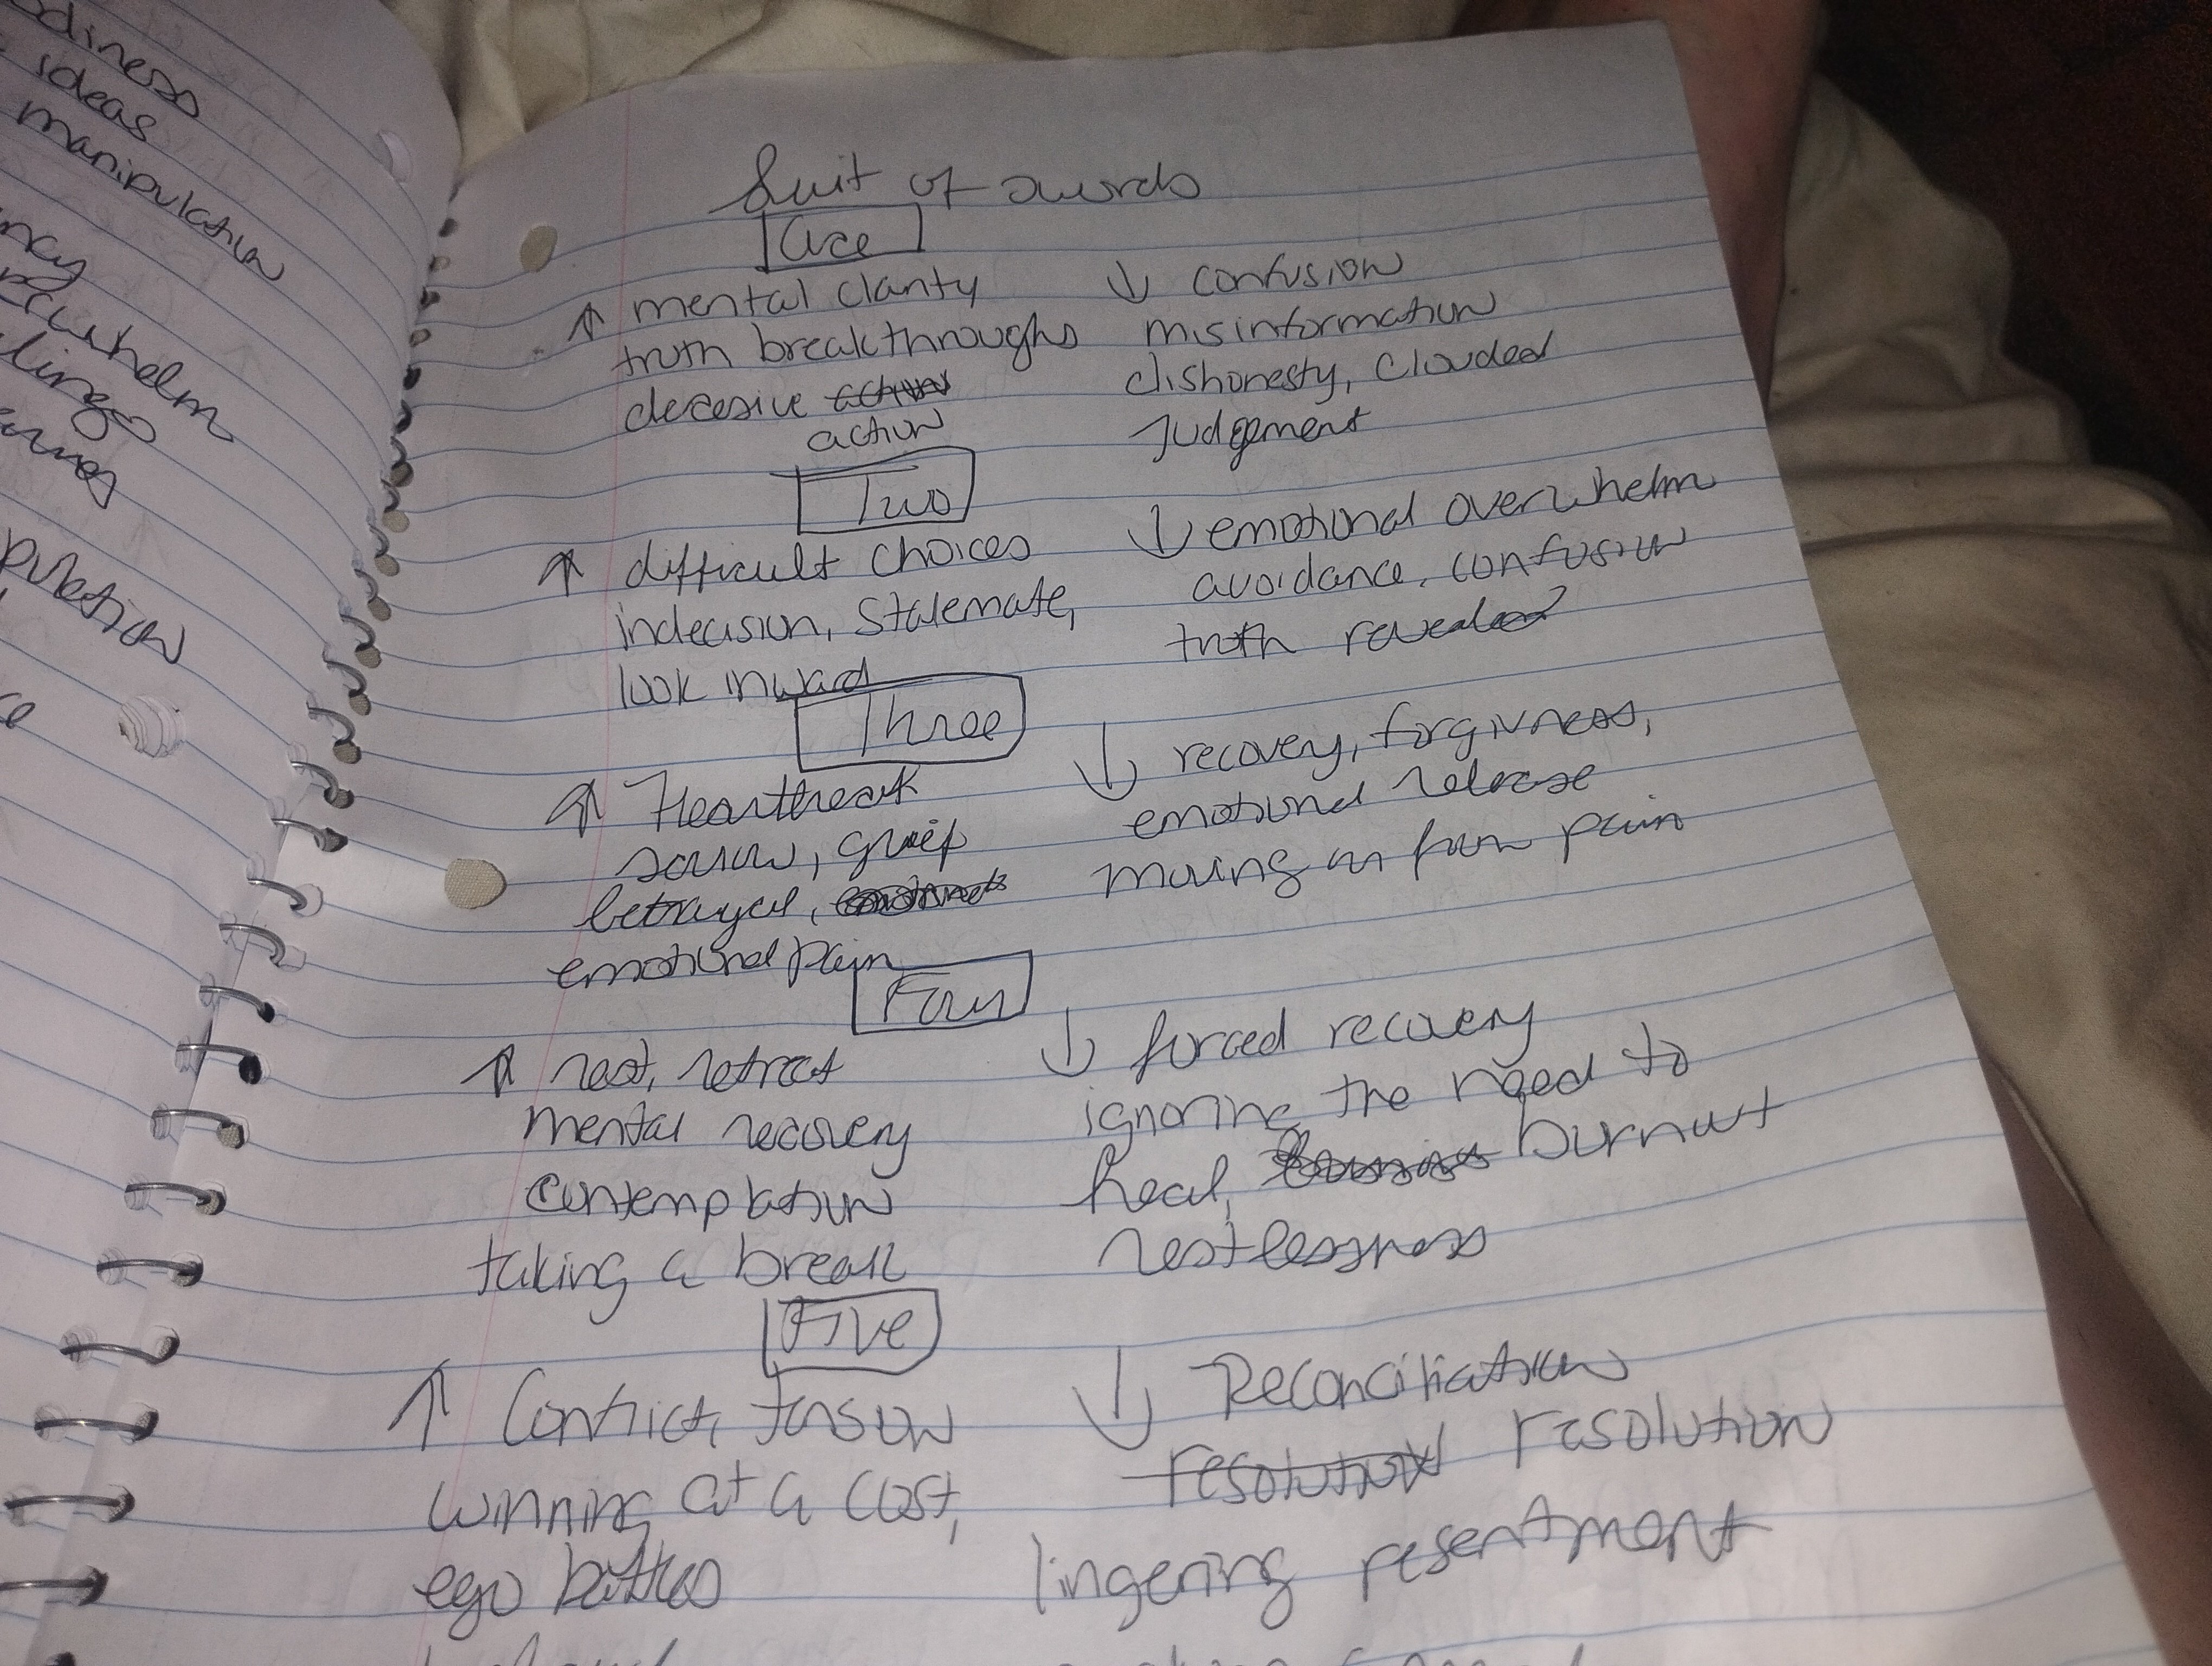 odiness
ideas
manipulation
ncy
rwhelm
lings
pulation
Suit of swords
Ace
↑ mental clarity
truth breakthroughs
decesive action
action
↓ confusion
misinformation
dishonesty, clouded
Judgement
Two
↑ difficult choices
indecision, stalemate,
look inward
↓ emotional overwhelm
avoidance, confusion
truth revealed
Three
↑ Heartbreak
sorrow, grief
betrayal,
emotional pain
↓ recovery, forgivness,
emotional release
moving on from pain
Four
↑ rest, retreat
mental recovery
contemplation
taking a break
↓ forced recovery
ignoring the need to
heal, burnout
restlessness
Five
↑ Conflict, tension
winning at a cost,
ego battles
↓ Reconciliation
resolution resolution
lingering resentment